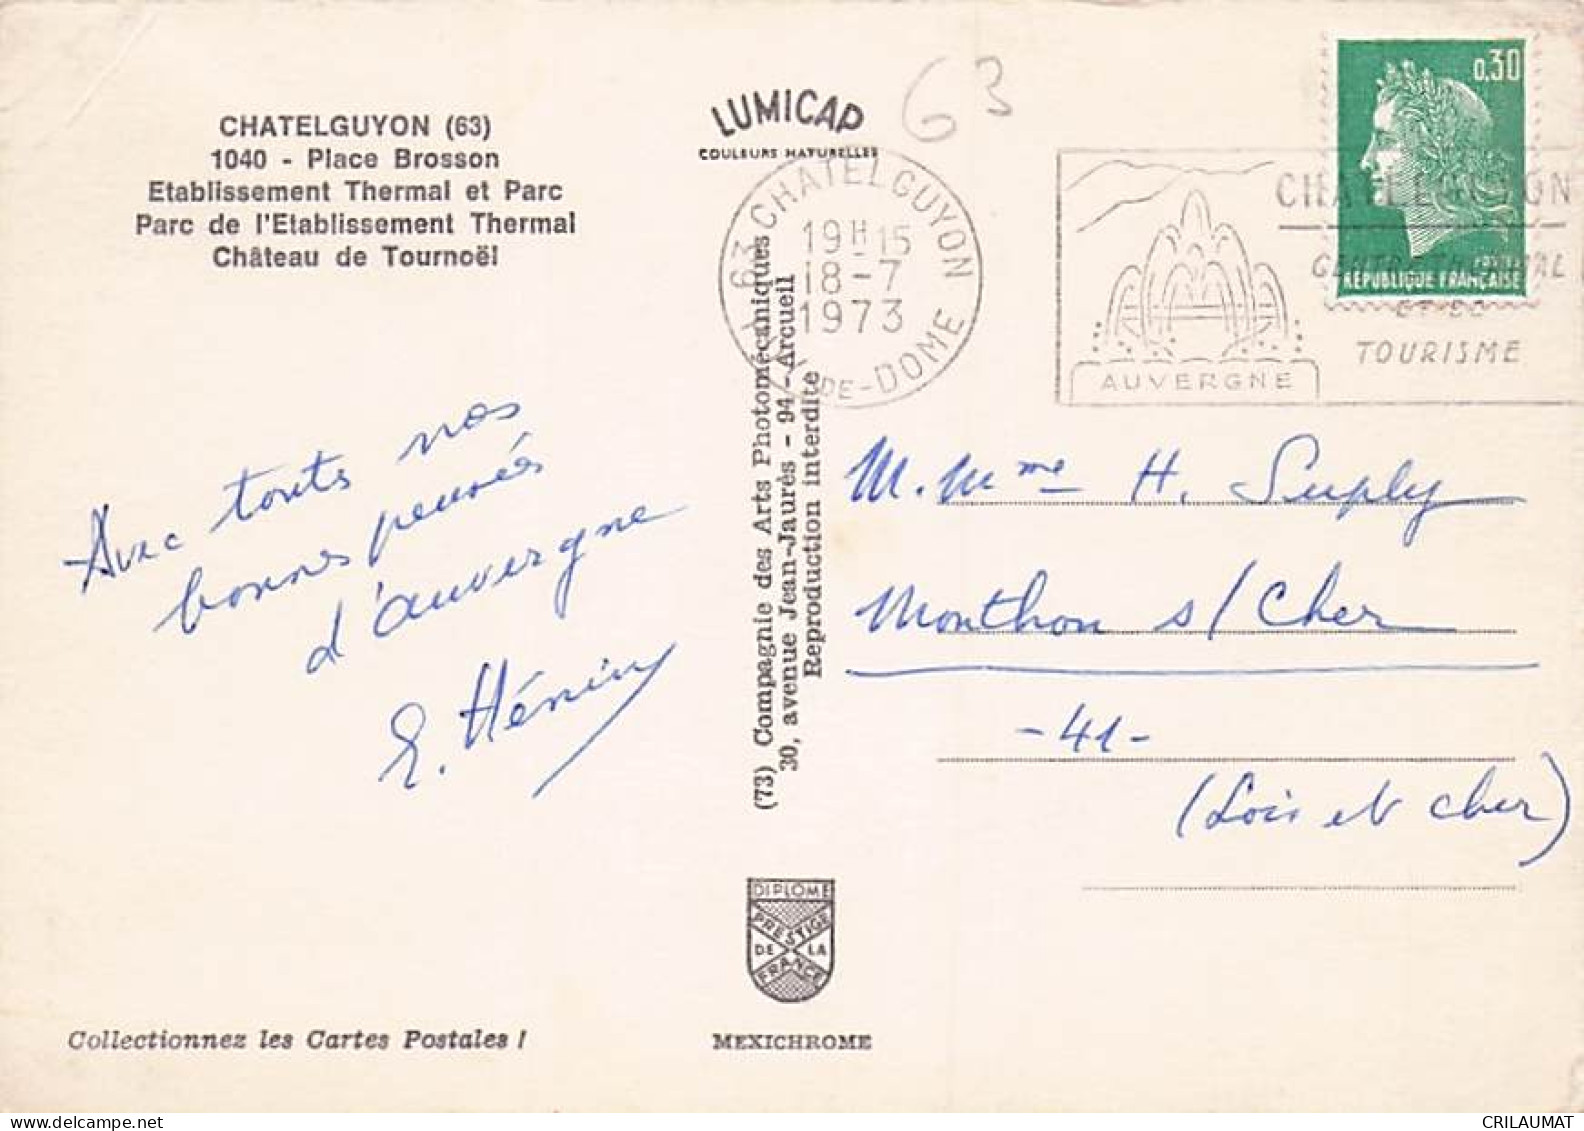 CHATELGUYON (63)
1040 - Place Brosson
Etablissement Thermal et Parc
Parc de l'Etablissement Thermal
Château de Tournoël
LUMICAP
COULEURS NATURELLES
63
63 CHATELGUYON
19H15
18-7
1973
PUY-DE-DOME
CHATELGUYON
TOURISME
AUVERGNE
0,30
POSTES
RÉPUBLIQUE FRANÇAISE
Avec touts nos
bonnes pensées
d'auvergne
E. Hénin
(73) Compagnie des Arts Photomécaniques
30, avenue Jean-Jaurès - 94 - Arcueil
Reproduction interdite
M. Mme H. Suply
Monthon s/Cher
-41-
(Loir et Cher)
DIPLOME
PRESTIGE
DE LA
FRANCE
Collectionnez les Cartes Postales !
MEXICHROME
CRILAUMAT